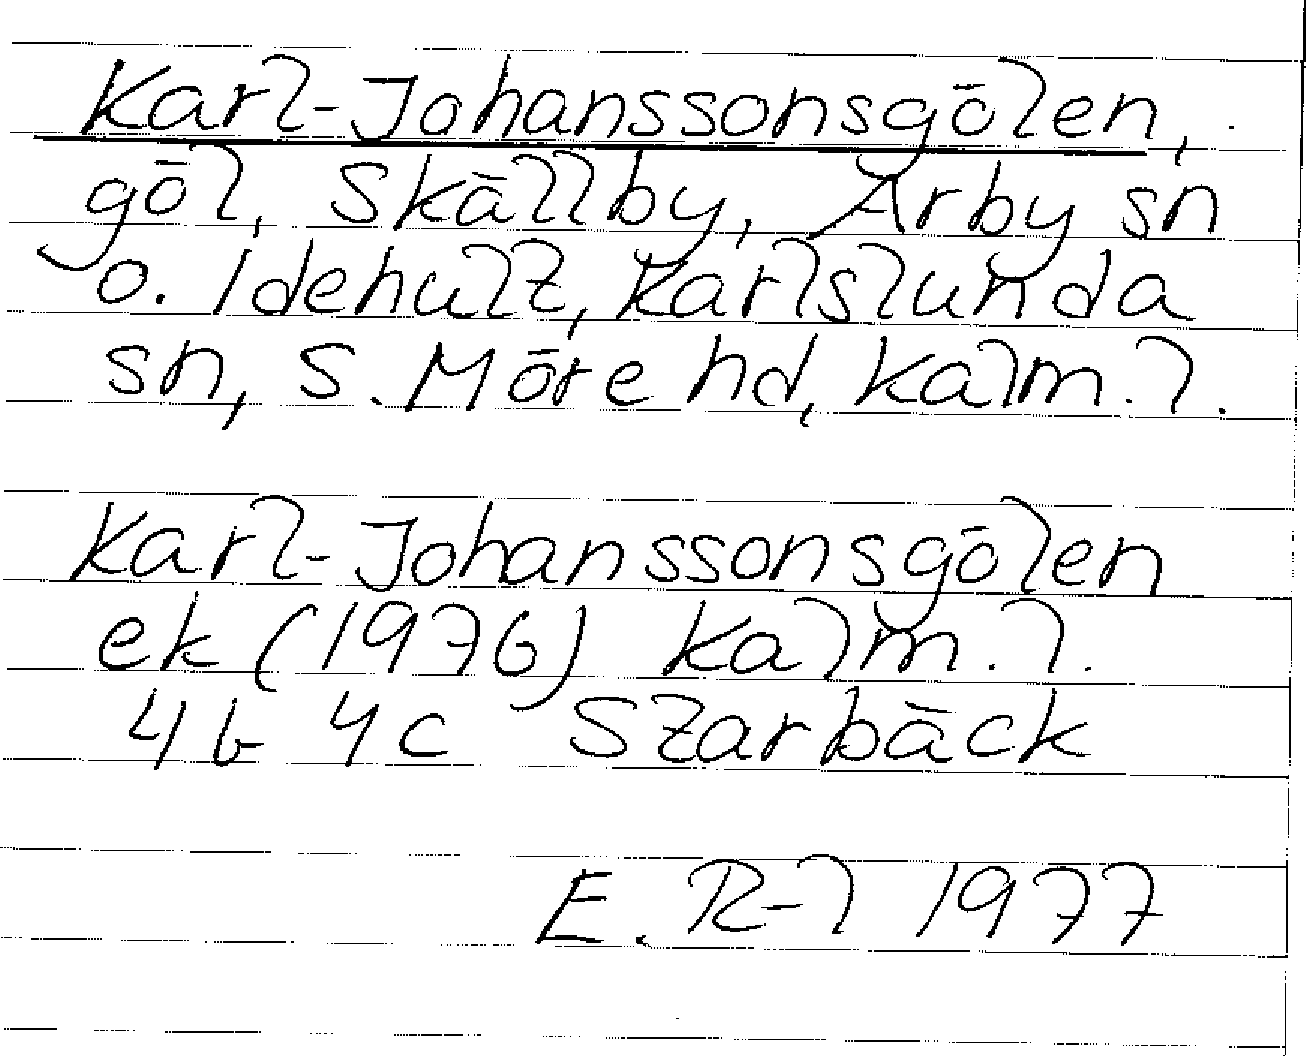 Karl-Johanssonsgölen,
göl, Skällby, Arby sn
o. Idehult, Karlslunda
sn, S. Möre hd, Kalm. l.
Karl-Johanssonsgölen
ek (1976) Kalm. l.
4b 4c Starbäck
E. R-l 1977